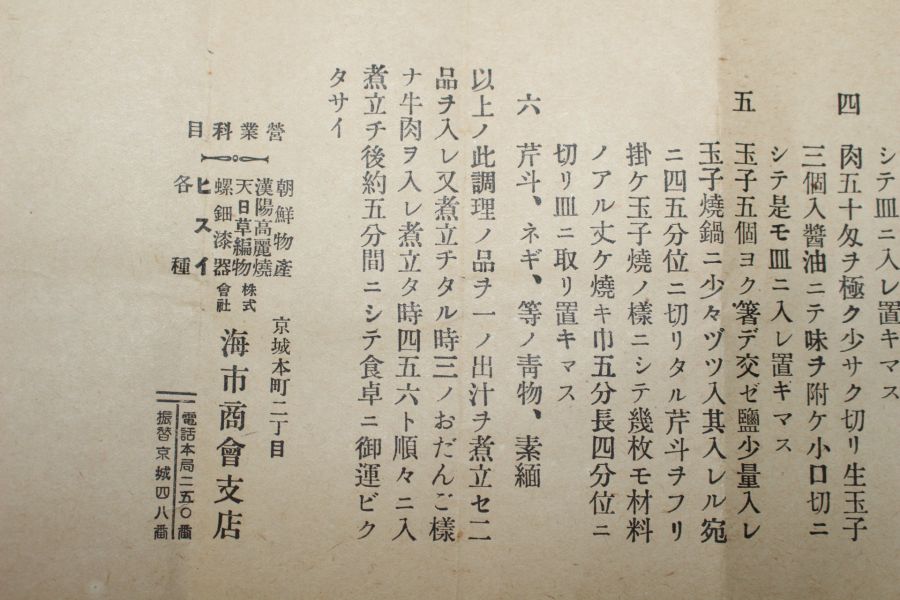 シテ皿ニ入レ置キマス
四 肉五十匁ヲ極ク少サク切リ生玉子
三個入醬油ニテ味ヲ附ケ小口切ニ
シテ是モ皿ニ入レ置キマス
五 玉子五個ヨク箸デ交ゼ鹽少量入レ
玉子燒鍋ニ少々ヅツ入其入レル宛
ニ四五分位ニ切リタル芹斗ヲフリ
掛ケ玉子燒ノ樣ニシテ幾枚モ材料
ノアル丈ケ燒キ巾五分長四分位ニ
切リ皿ニ取リ置キマス
六 芹斗、ネギ、等ノ靑物、素緬
以上ノ此調理ノ品ヲ一ノ出汁ヲ煮立セ二
品ヲ入レ又煮立チタル時三ノおだんご樣
ナ牛肉ヲ入レ煮立タ時四五六ト順々ニ入
煮立チ後約五分間ニシテ食卓ニ御運ビク
タサイ
營業科目
朝鮮物產
漢陽高麗燒
天日草編物
螺鈿漆器
ヒスイ
各種
京城本町二丁目
株式會社 海市商會支店
電話本局二五〇番
振替京城四八番